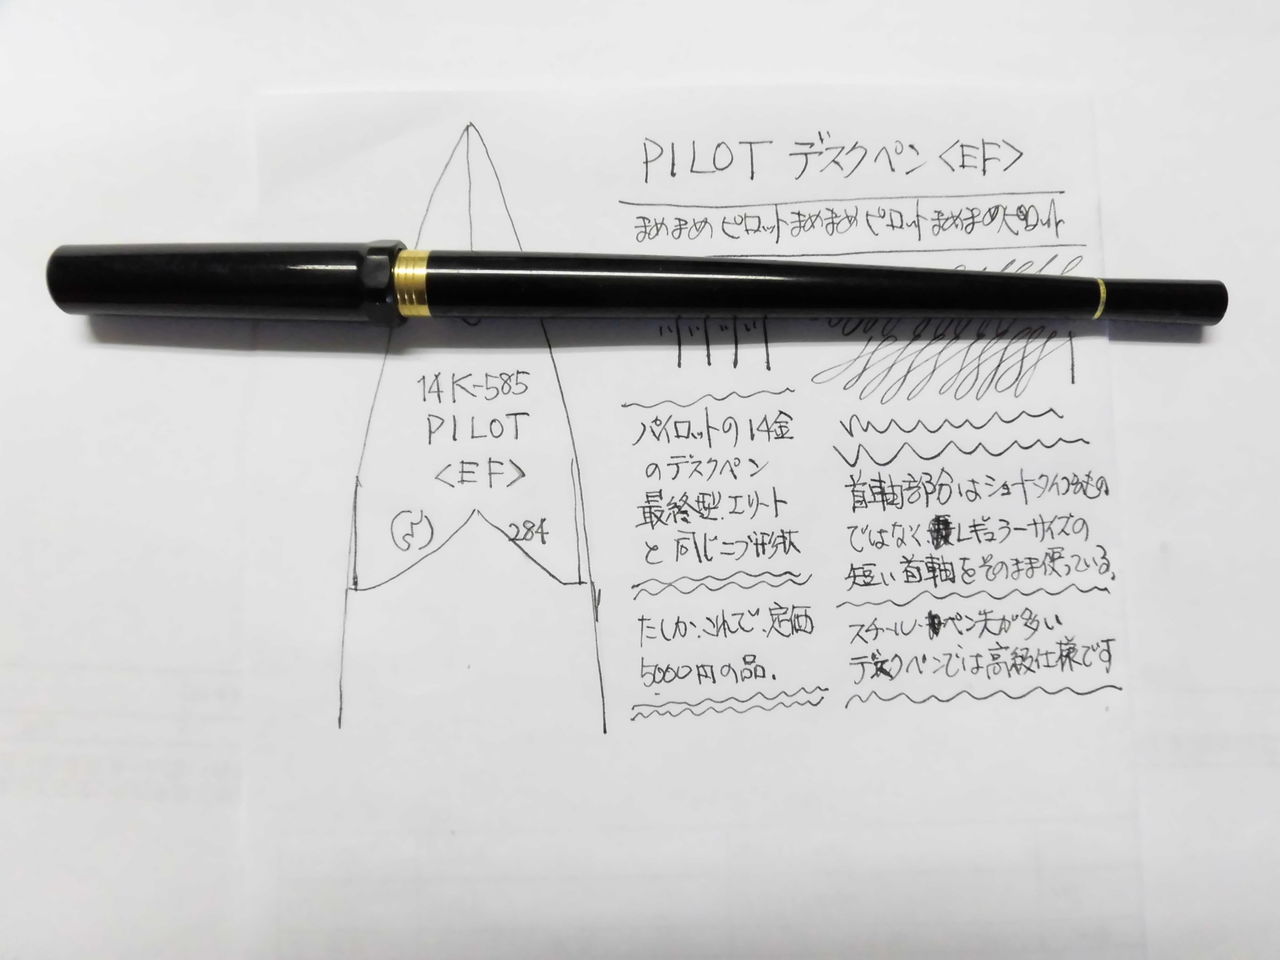 PILOT デスクペン〈EF〉
まめまめピロットまめまめピロットまめまめピロット
14K-585
PILOT
〈EF〉
284
パイロットの14金
のデスクペン
最終型.エリート
と同じニブ形状
たしか、これで、定価
5000円の品.
首軸部分はショートタイプのもの
ではなく、レギュラーサイズの
短い首軸をそのまま使っている。
スチールペン先が多い
デスクペンでは高級仕様です